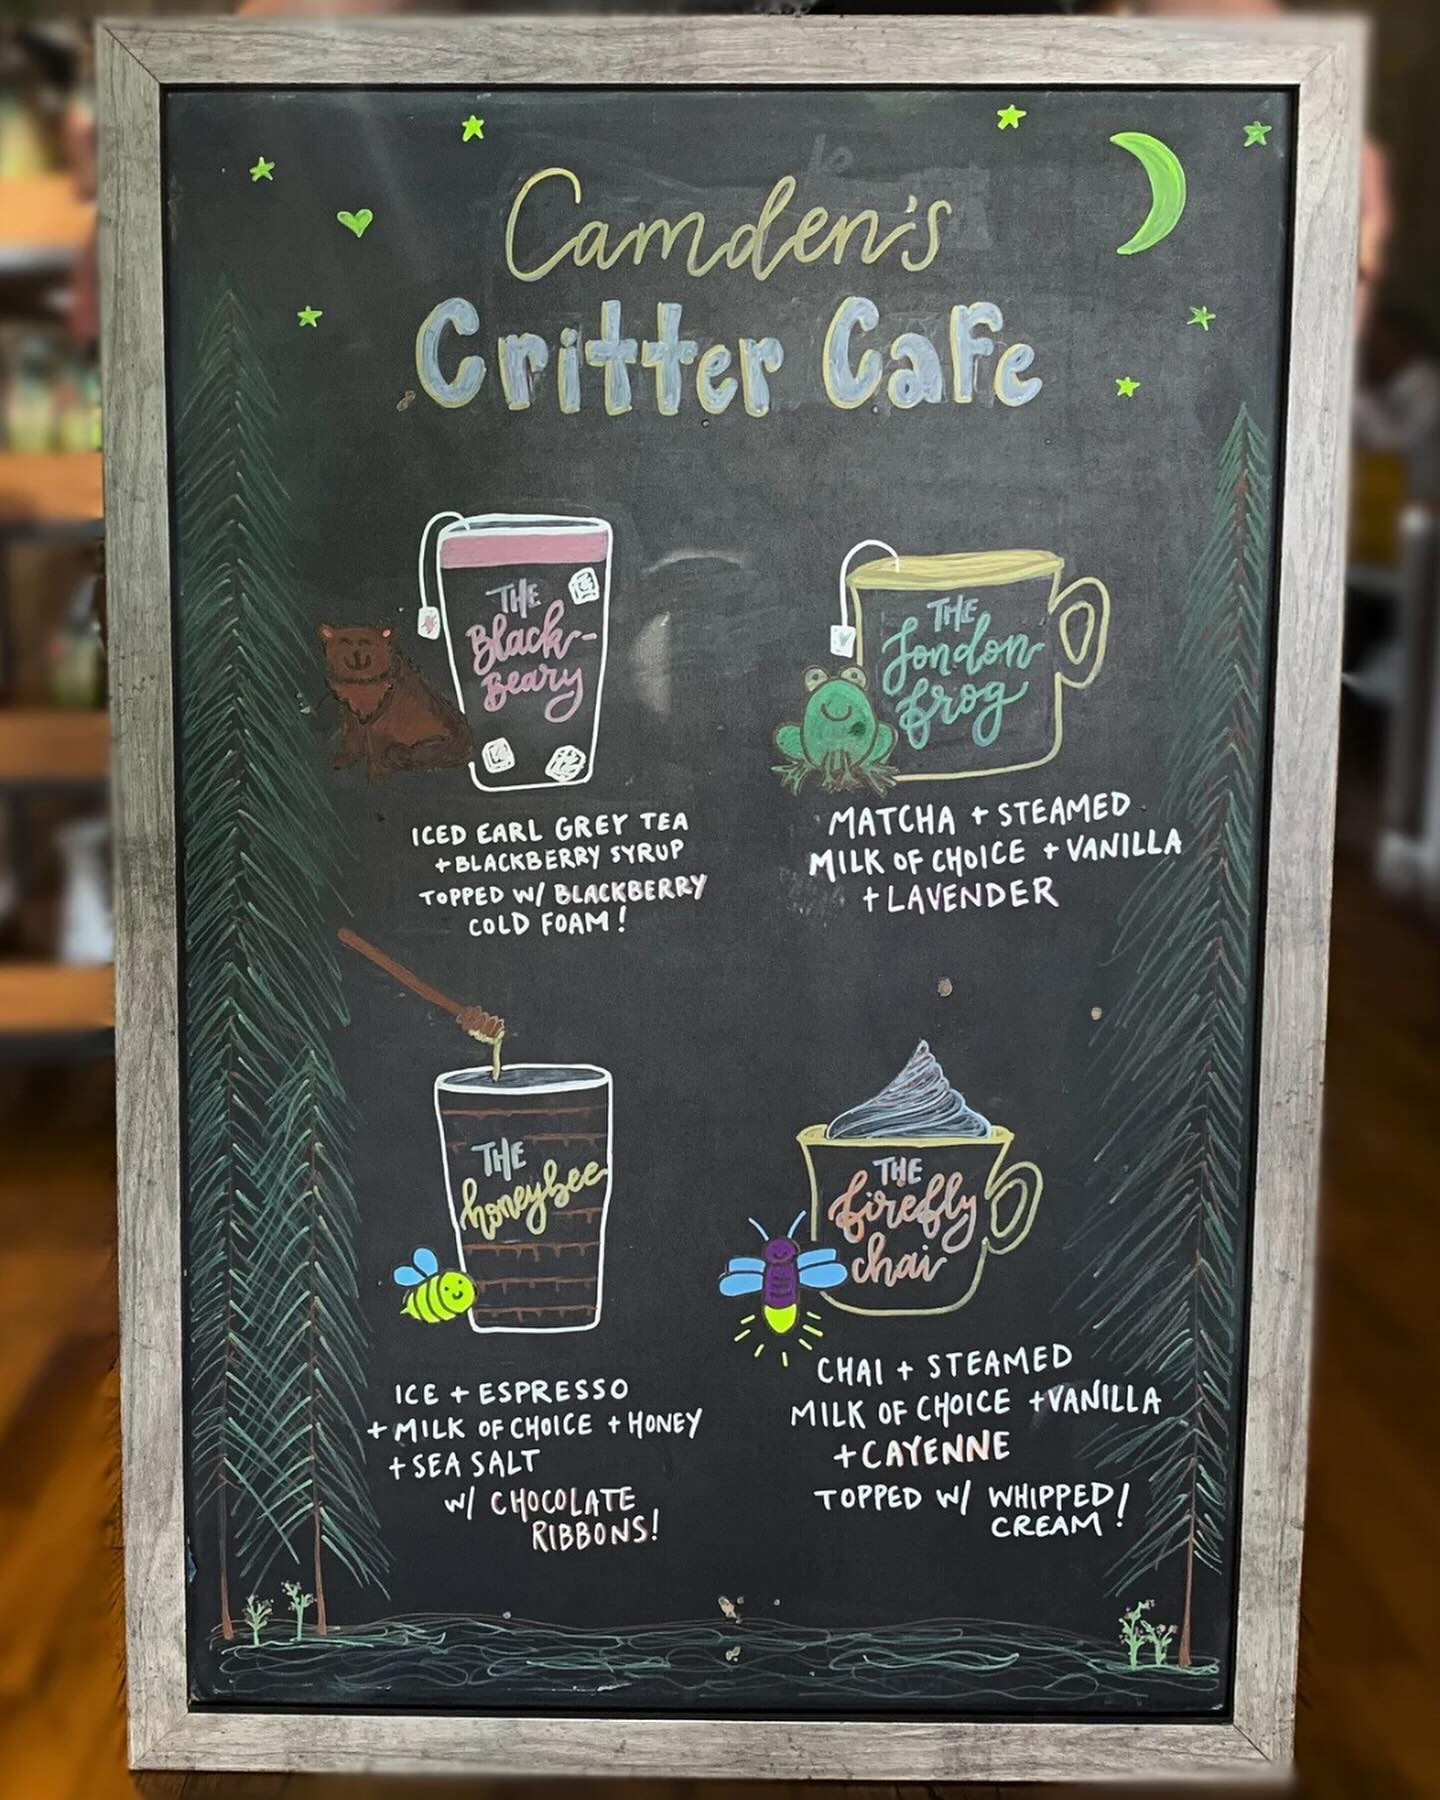 Camden's
Critter Cafe
THE
Black-
Beary
ICED EARL GREY TEA
+ BLACKBERRY SYRUP
TOPPED W/ BLACKBERRY
COLD FOAM!
THE
London
frog
MATCHA + STEAMED
MILK OF CHOICE + VANILLA
+ LAVENDER
THE
honeybee
ICE + ESPRESSO
+ MILK OF CHOICE + HONEY
+ SEA SALT
W/ CHOCOLATE
RIBBONS!
THE
firefly
chai
CHAI + STEAMED
MILK OF CHOICE + VANILLA
+ CAYENNE
TOPPED W/ WHIPPED
CREAM!